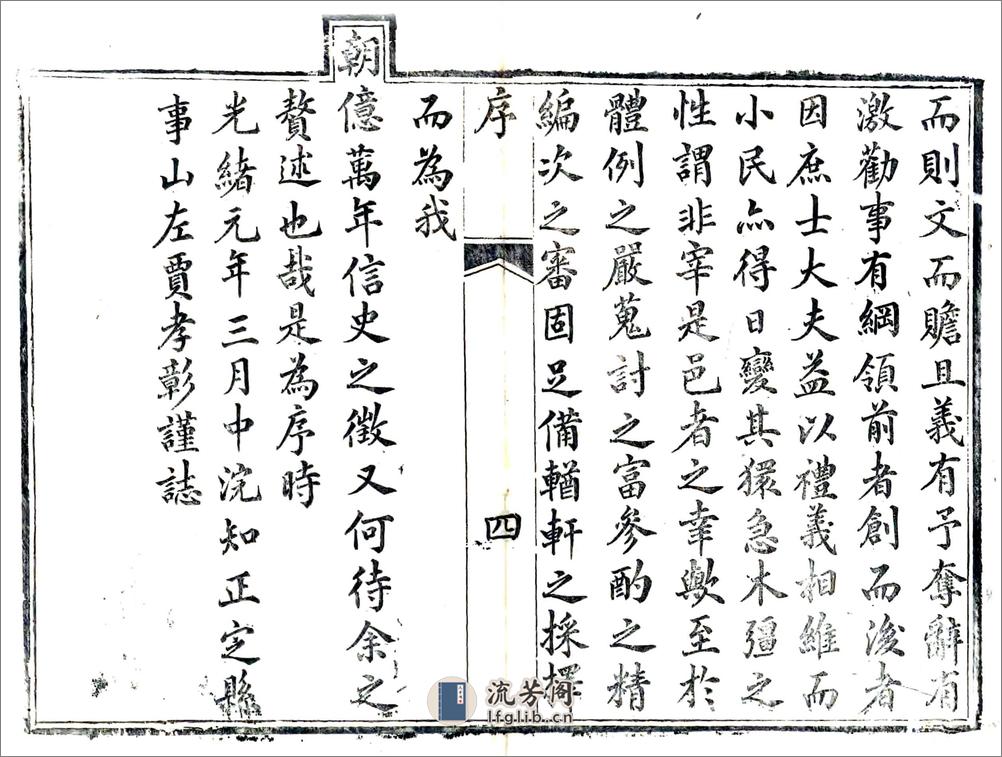 而則文而贍且義有予奪辭有
激勸事有綱領前者創而後者
因庶士大夫益以禮義相維而
小民亦得日變其獧急木彊之
性謂非宰是邑者之幸歟至於
體例之嚴蒐討之富參酌之精
編次之審固足備輶軒之採擇
序
四
而為我
朝
億萬年信史之徵又何待余之
贅述也哉是為序時
光緒元年三月中浣知正定縣
事山左賈孝彰謹誌
流芳阁
lfglib.cn